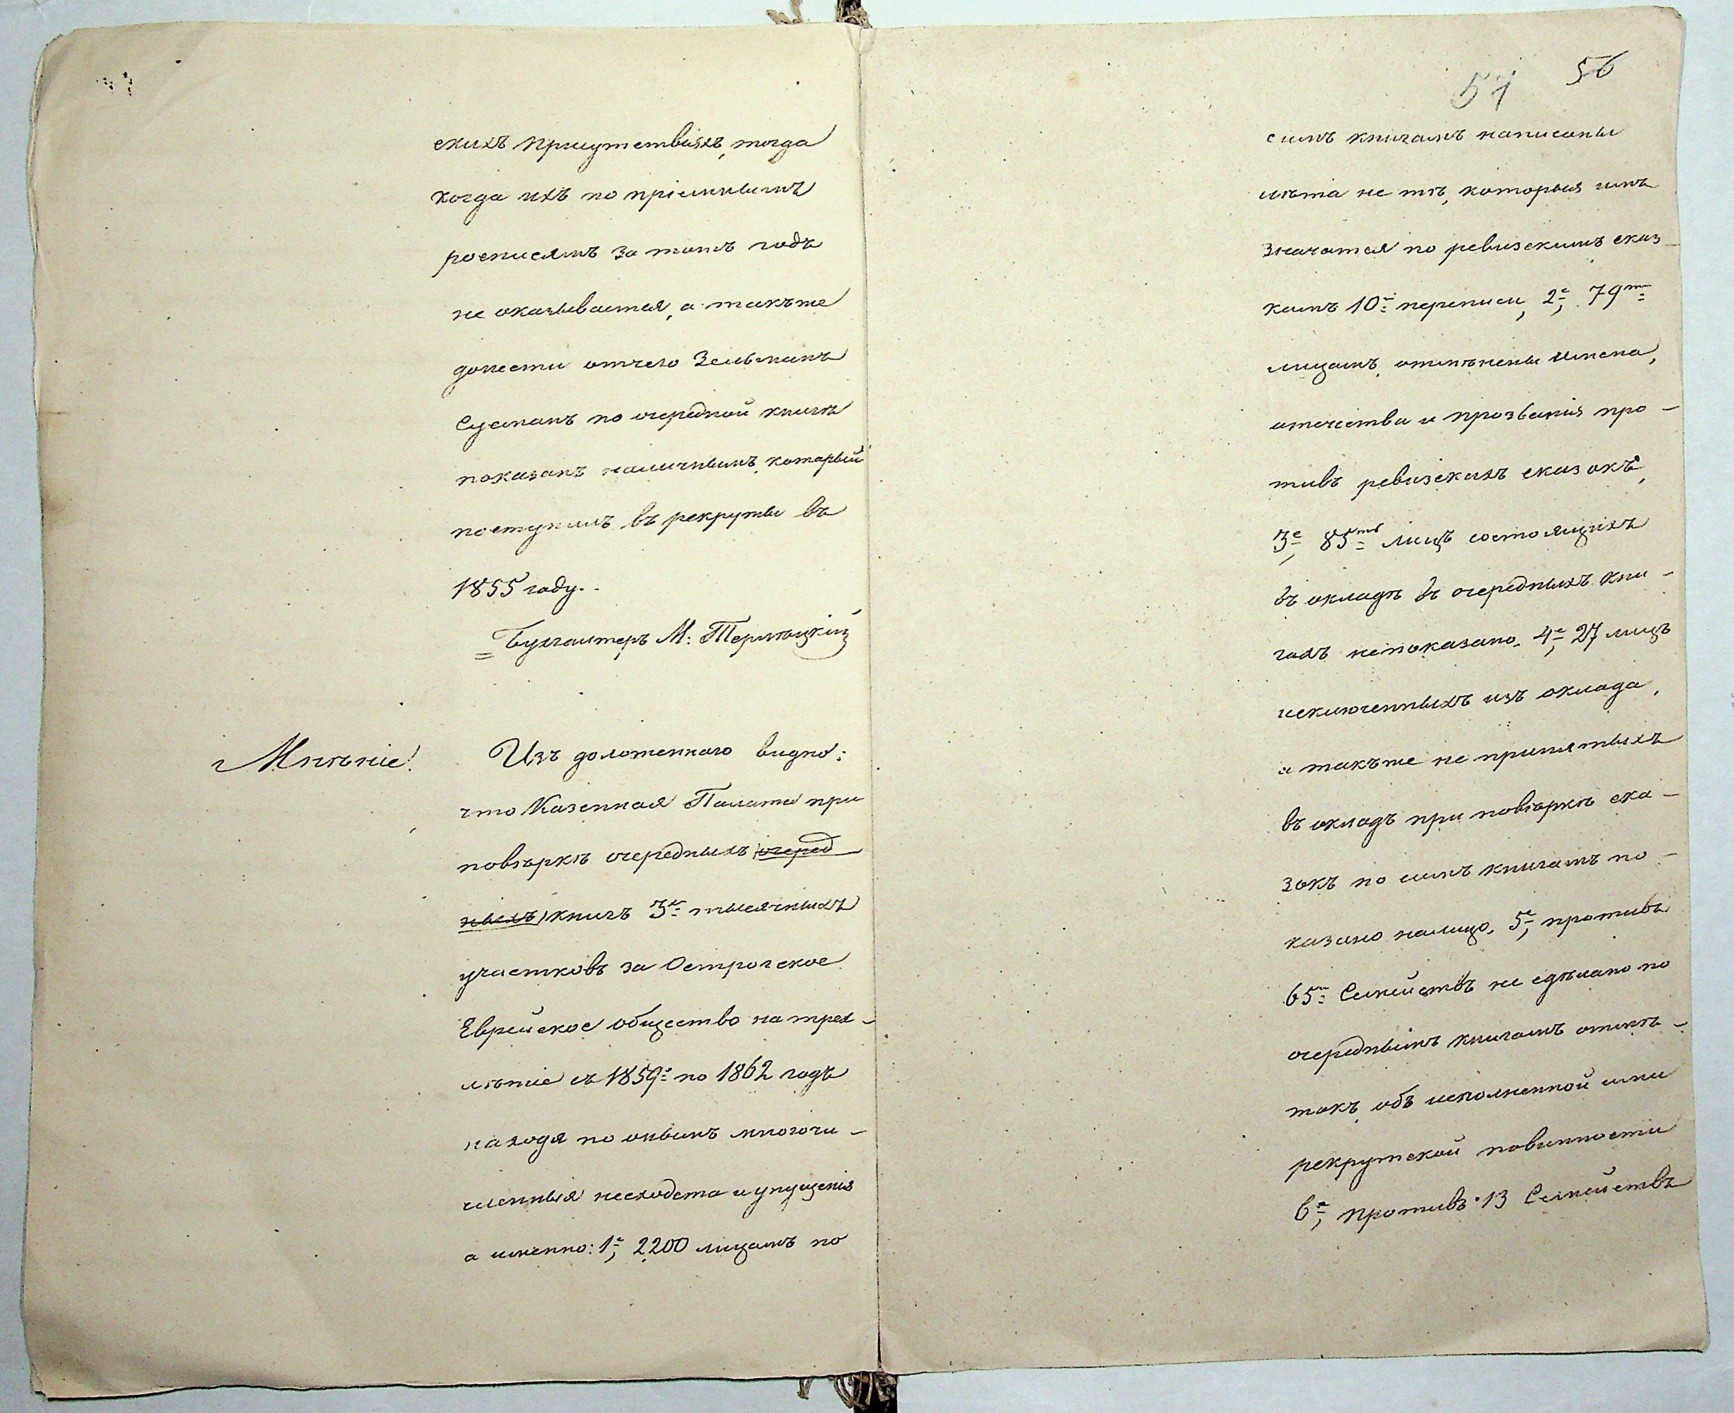 скихъ присутствіяхъ, тогда
когда ихъ по пріемнымъ
росписямъ за тотъ годъ
не оказывается, а такъже
донести отчего Зельманъ
Сусманъ по очередной книгѣ
показанъ наличнымъ, который
поступилъ въ рекруты въ
1855 году.
Бухгалтеръ М: Термѣцкій
Мнѣніе:
Изъ доложеннаго видно:
что Казенная Палата при
повѣркѣ очередныхъ очеред
ныхъ книгъ 3хъ тысячныхъ
участковъ за Острогское
Еврейское общество на трех-
лѣтіе съ 1859го по 1862 годъ
находя по онымъ многочи-
сленныя несходства и упущенія
а именно: 1е, 2200 лицамъ по
57 56
симъ книгамъ написаны
лѣта не тѣ, которыя имъ
значатся по ревизскимъ сказ-
камъ 10й переписи, 2е, 79ти
лицамъ, отмѣнены имена,
отчества и прозванія про-
тивъ ревизскихъ сказокъ,
3е, 85ть лицъ состоящихъ
въ окладѣ въ очередныхъ кни-
гахъ непоказано, 4е, 27 лицъ
исключенныхъ изъ оклада,
а такъже не принятыхъ
въ окладъ при повѣркѣ ска-
зокъ по симъ книгамъ по-
казано налицо, 5е, противъ
65ти Семействъ не сдѣлано по
очереднымъ книгамъ отмѣ-
токъ объ исполненной ими
рекрутской повинности
6е, противъ 13 Семействъ